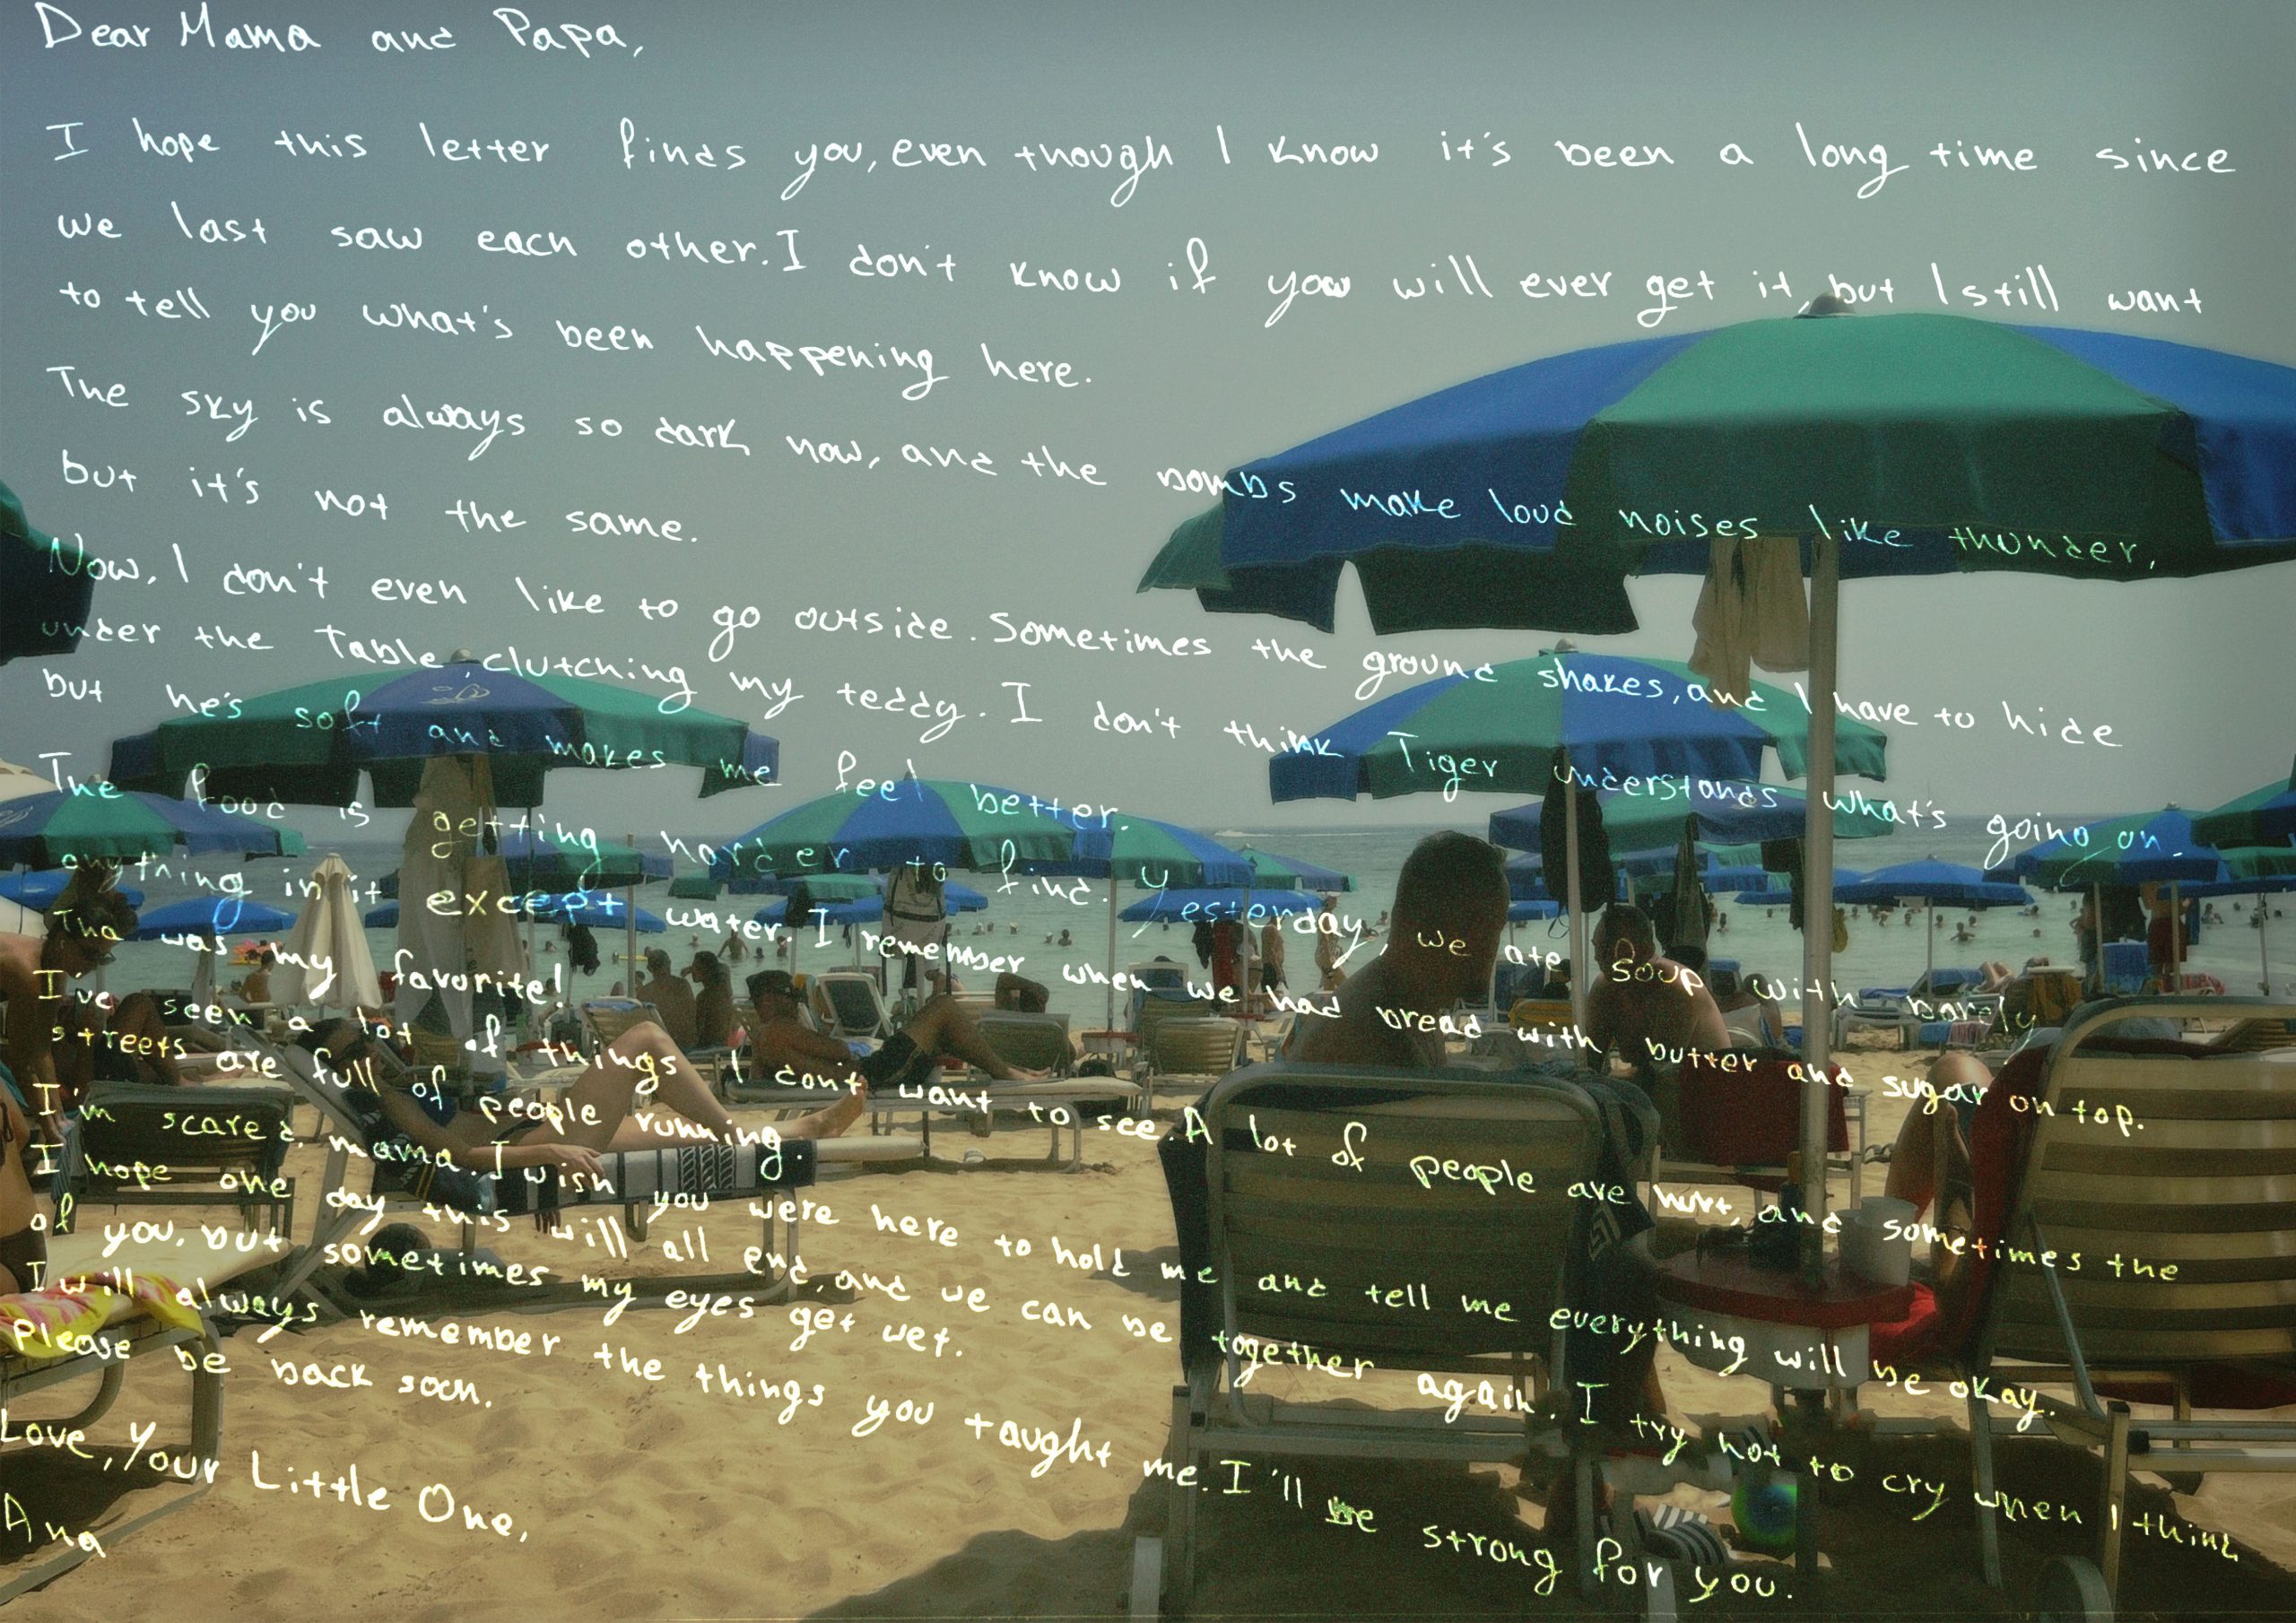 Dear Mama and Papa,
I hope this letter finds you, even though I know it's been a long time since
we last saw each other. I don't know if you will ever get it, but I still want
to tell you what's been happening here.
The sky is always so dark now, and the bombs make loud noises like thunder,
but it's not the same.
Now, I don't even like to go outside. Sometimes the ground shakes, and I have to hide
under the table, clutching my teddy. I don't think Tiger understands what's going on.
but he's soft and makes me feel better.
The food is getting harder to find. Yesterday, we ate soup with barely
anything in it except water. I remember when we had bread with butter and sugar on top.
Tha was my favorite!
I've seen a lot of things I don't want to see. A lot of people are hurt, and sometimes the
streets are full of people running.
I'm scared, mama. I wish you were here to hold me and tell me everything will be okay.
I hope one day this will all end, and we can be together again. I try not to cry when I think
of you, but sometimes my eyes get wet.
I will always remember the things you taught me. I'll be strong for you.
Please be back soon.
Love, Your Little One,
Ana